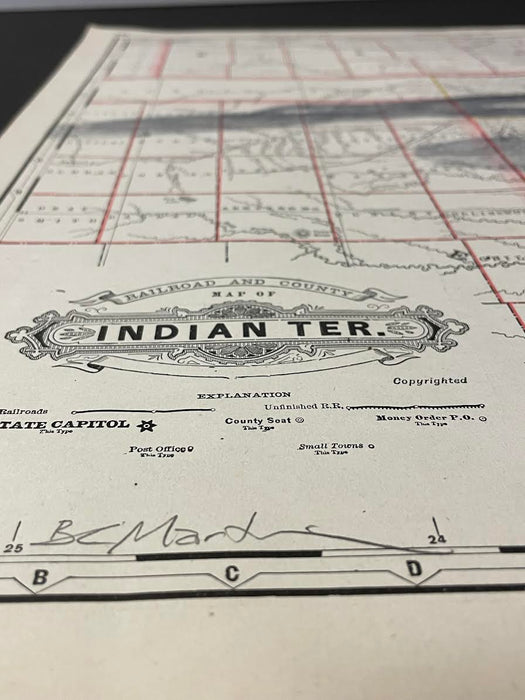 RAILROAD AND COUNTY
MAP OF
INDIAN TER.
Copyrighted
EXPLANATION
Railroads
Unfinished R.R.
TATE CAPITOL
This Type
County Seat
This Type
Money Order P.O.
This Type
Post Office
This Type
Small Towns
This Type
25
24
B C D